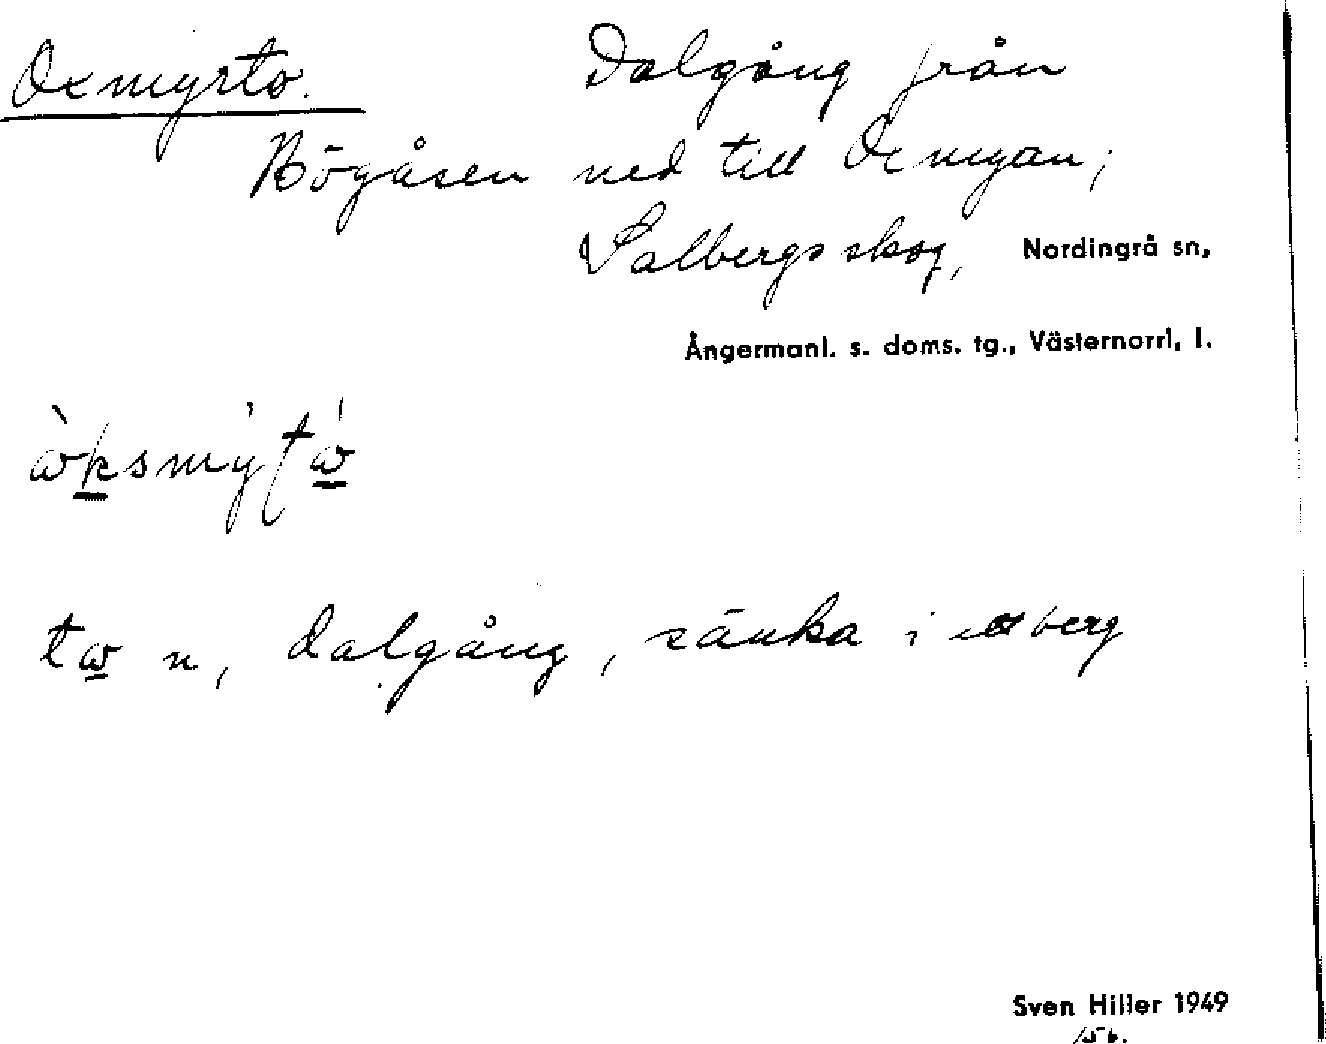 Oxmyrto. Dalgång från
Högåsen ned till Oxmyran,
Salbergs skog, Nordingrå sn,
Ångermanl. s. doms. tg., Västernorrl. l.
tω̲ n, dalgång, sänka i ett berg
Sven Hiller 1949